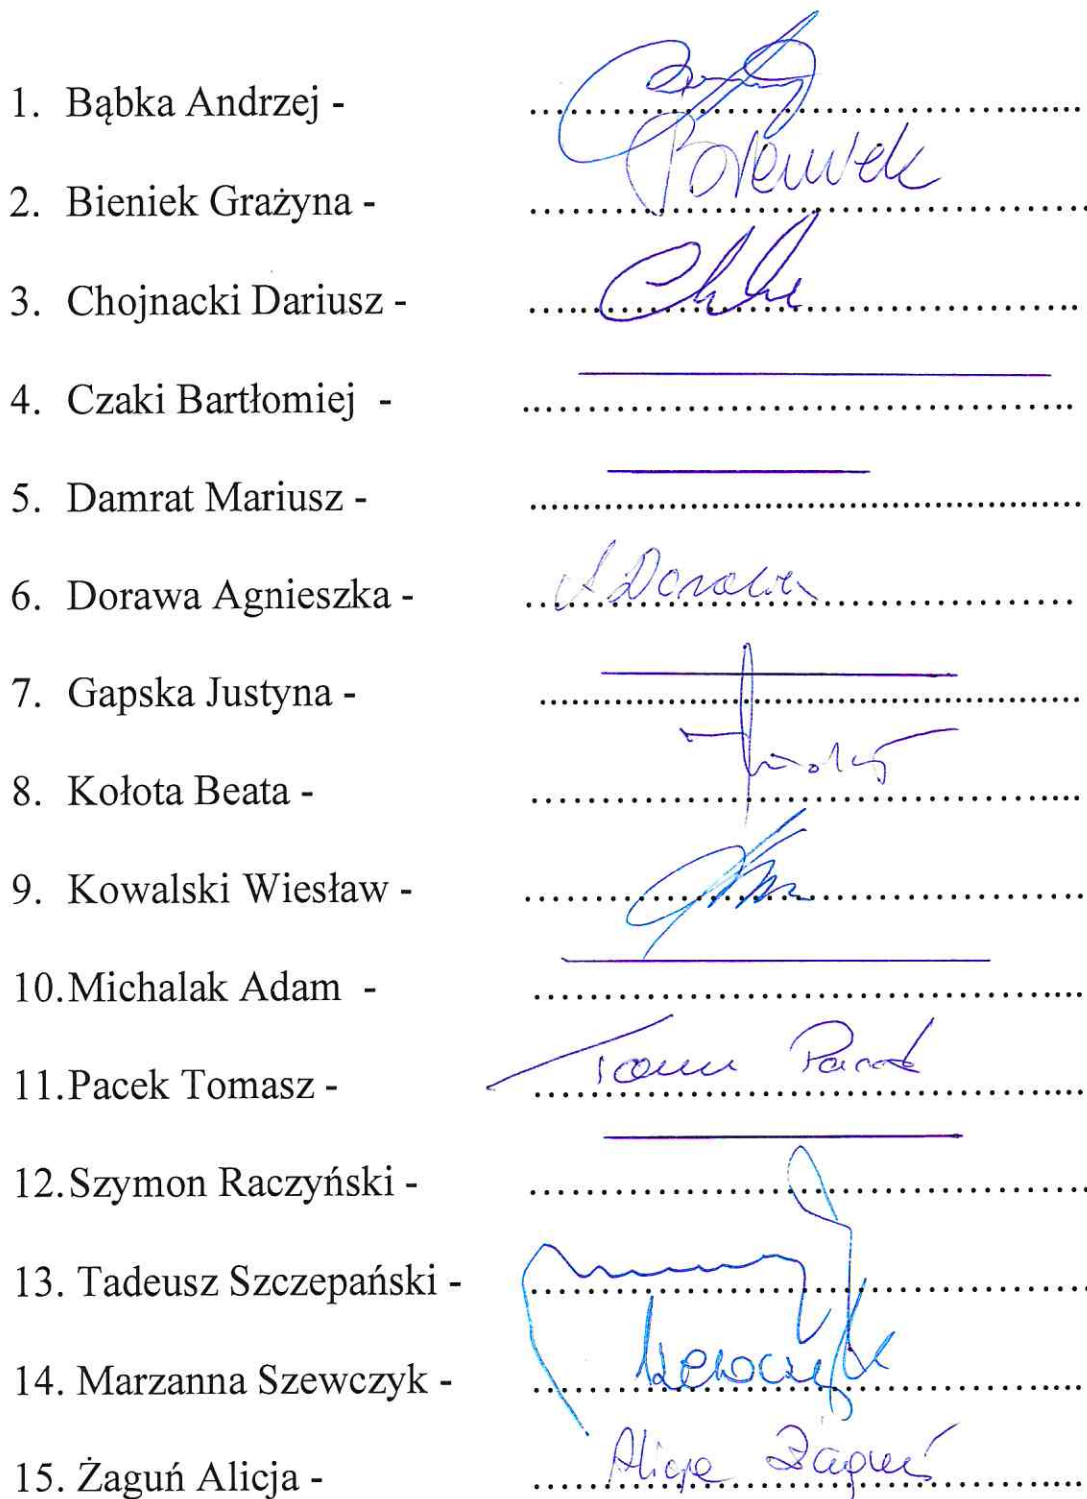 1. Bąbka Andrzej - ..........................................
2. Bieniek Grażyna - ..........................................
3. Chojnacki Dariusz - ..........................................
4. Czaki Bartłomiej - ..........................................
5. Damrat Mariusz - ..........................................
6. Dorawa Agnieszka - .......................................... A Dorawa
7. Gapska Justyna - ..........................................
8. Kołota Beata - ..........................................
9. Kowalski Wiesław - ..........................................
10. Michalak Adam - ..........................................
11. Pacek Tomasz - .......................................... Pacek
12. Szymon Raczyński - ..........................................
13. Tadeusz Szczepański - ..........................................
14. Marzanna Szewczyk - .......................................... Szewczyk
15. Żaguń Alicja - .......................................... Alicja Żaguń